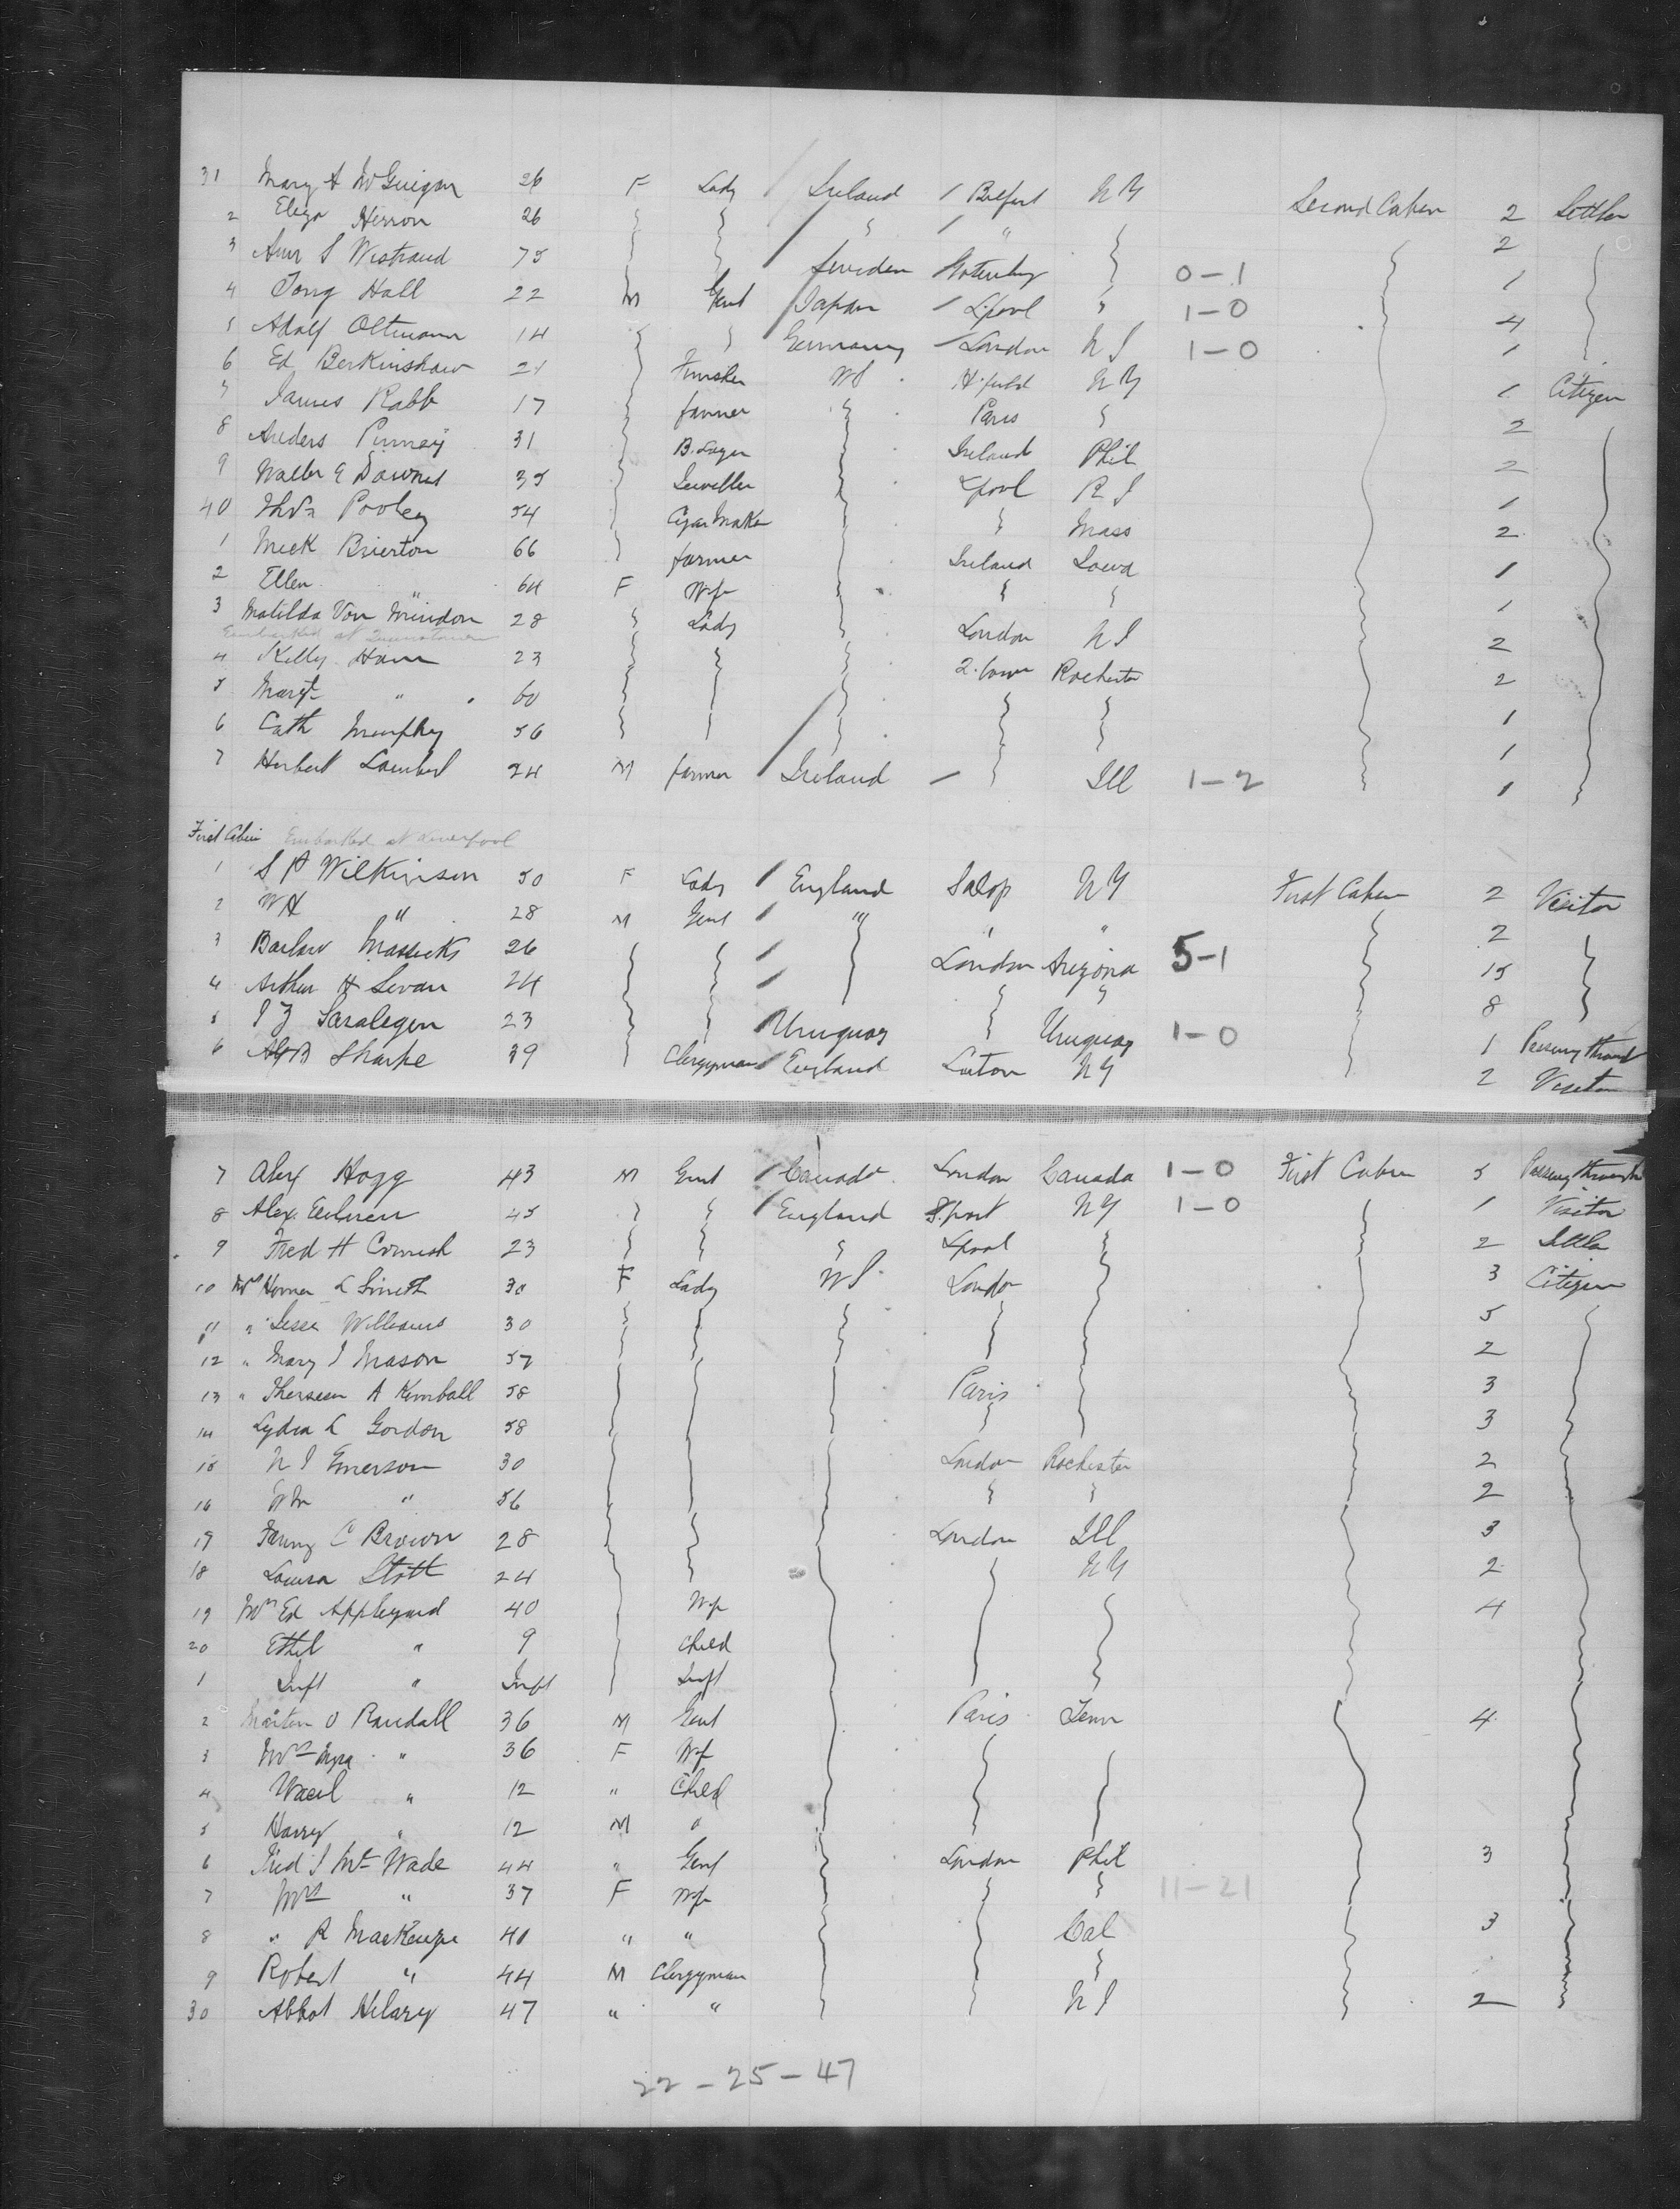 31 Mary A McGuigan 26 F Lady Ireland Belfast NY Second Cabin 2 Settler
2 Eliza Herron 26 " " 2
3 S Westrand 75 Sweden Gotenburg 0-1 1
4 Tong Hall 22 M Gent Japan L.pool " 1-0 4
5 Adolf Oltmann 14 Germany London NJ 1-0 1
6 Ed Berkinshaw 21 Finisher US H.field NY 1 Citizen
7 James Rabb 17 farmer Paris 2
8 Anders 31 B.Layer Ireland Phil 2
9 Walter E Downes 35 Jeweller Lpool R I 1
40 Thos Pooley 54 Cigar Maker Mass 2
1 Mick Brierton 66 farmer Ireland Iowa 1
2 Ellen " 64 F Wife 1
3 Matilda Von Mindon 28 Lady London NJ 2
Embarked at Queenstown
4 Kelly 23 Q.town Rochester 2
5 Margt " 60 1
6 Cath Murphy 56 1
7 Herbert Lambert 24 M farmer Ireland Ill 1-2 1
First Cabin Embarked at Liverpool
1 S A Wilkinson 50 F Lady England Salop NY First Cabin 2 Visitor
2 W H " 28 M Gent " " " 2
3 Barlow Massicks 26 London Arizona 5-1 15
4 Arthur H 24 " 8
5 23 Uruguay Uruguay 1-0 1 Passing through
6 Sharpe 39 Clergyman England Luton NY 2 Visitor
7 Alex Hogg 43 M Gent Canada London Canada 1-0 First Cabin 5 Passing through
8 Alex. 45 England S.port NY 1-0 1 Visitor
9 Fred H Cornish 23 Lpool 2 Settler
10 Mrs Homer L Smith 30 F Lady US London 3 Citizen
11 " Jesse Williams 30 5
12 " Mary J Mason 57 2
13 " A Kimball 58 Paris 3
14 Lydia L Gordon 58 3
15 N J Emerson 30 London Rochester 2
16 Wm " 56 2
17 Fanny C Brown 28 London Ill 3
18 Louisa Stott 24 NY 2
19 Mrs Ed Appleyard 40 Wife 4
20 Ethel " 9 Child
1 Inft " Inft Inft
2 O Randall 36 M Gent Paris Tenn 4
3 Mrs " 36 F Wf
4 " 12 " Child
5 Harry " 12 M "
6 Fred J Wade 44 " Gent London Phil 3
7 Mrs " 37 F Wife 11-21
8 " R MacKenzie 40 " " Cal 3
9 Robert " 44 M Clergyman
30 Abbot Hilary 47 " " NJ 2
22-25-47